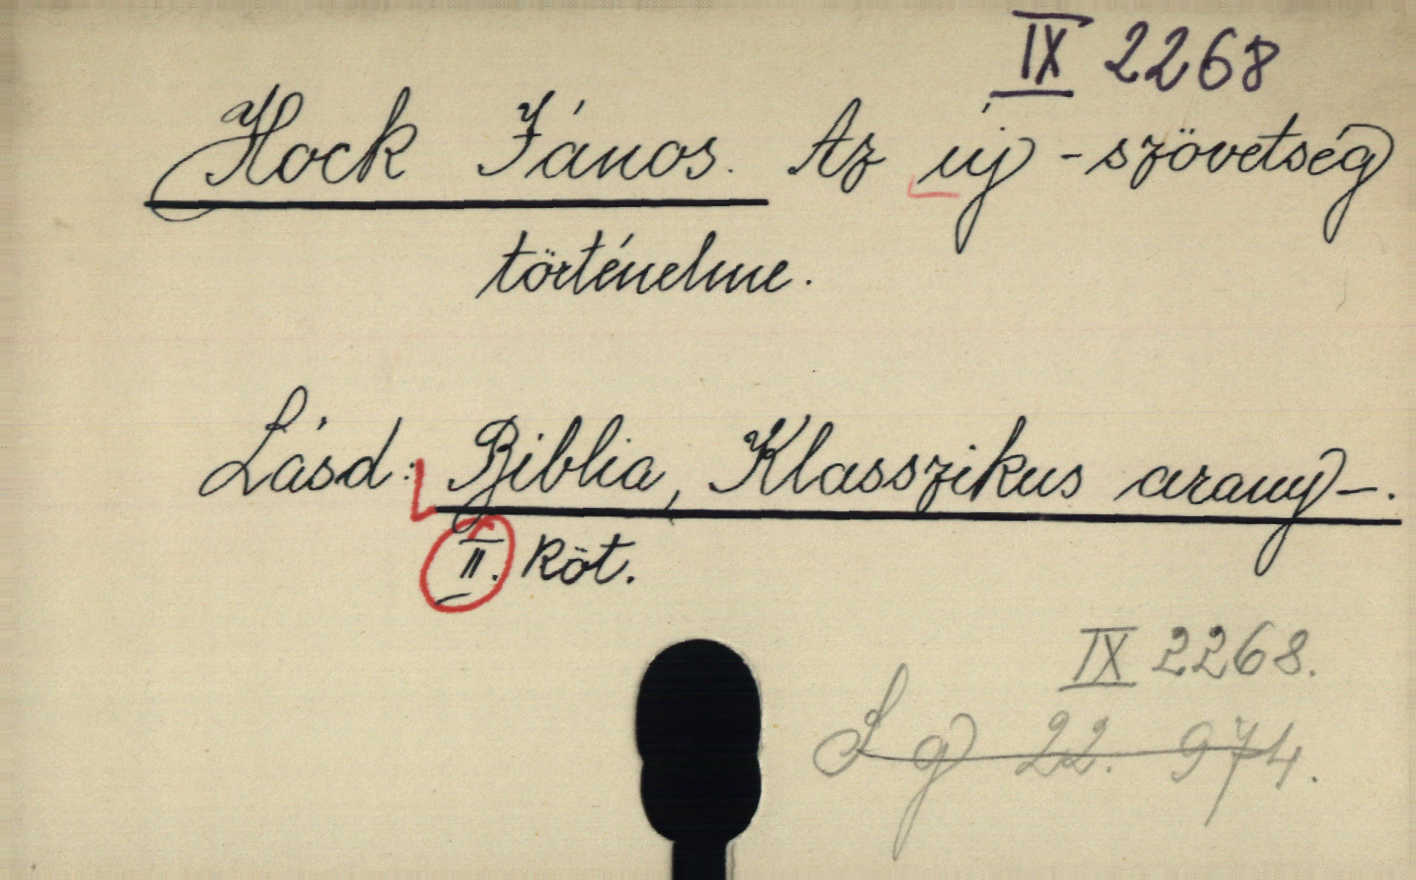 IX 2268
Hock János. Az új-szövetség
történelme.
Lásd: Biblia, Klasszikus arany-.
II. Köt.
IX 2268.
S g 22. 974.